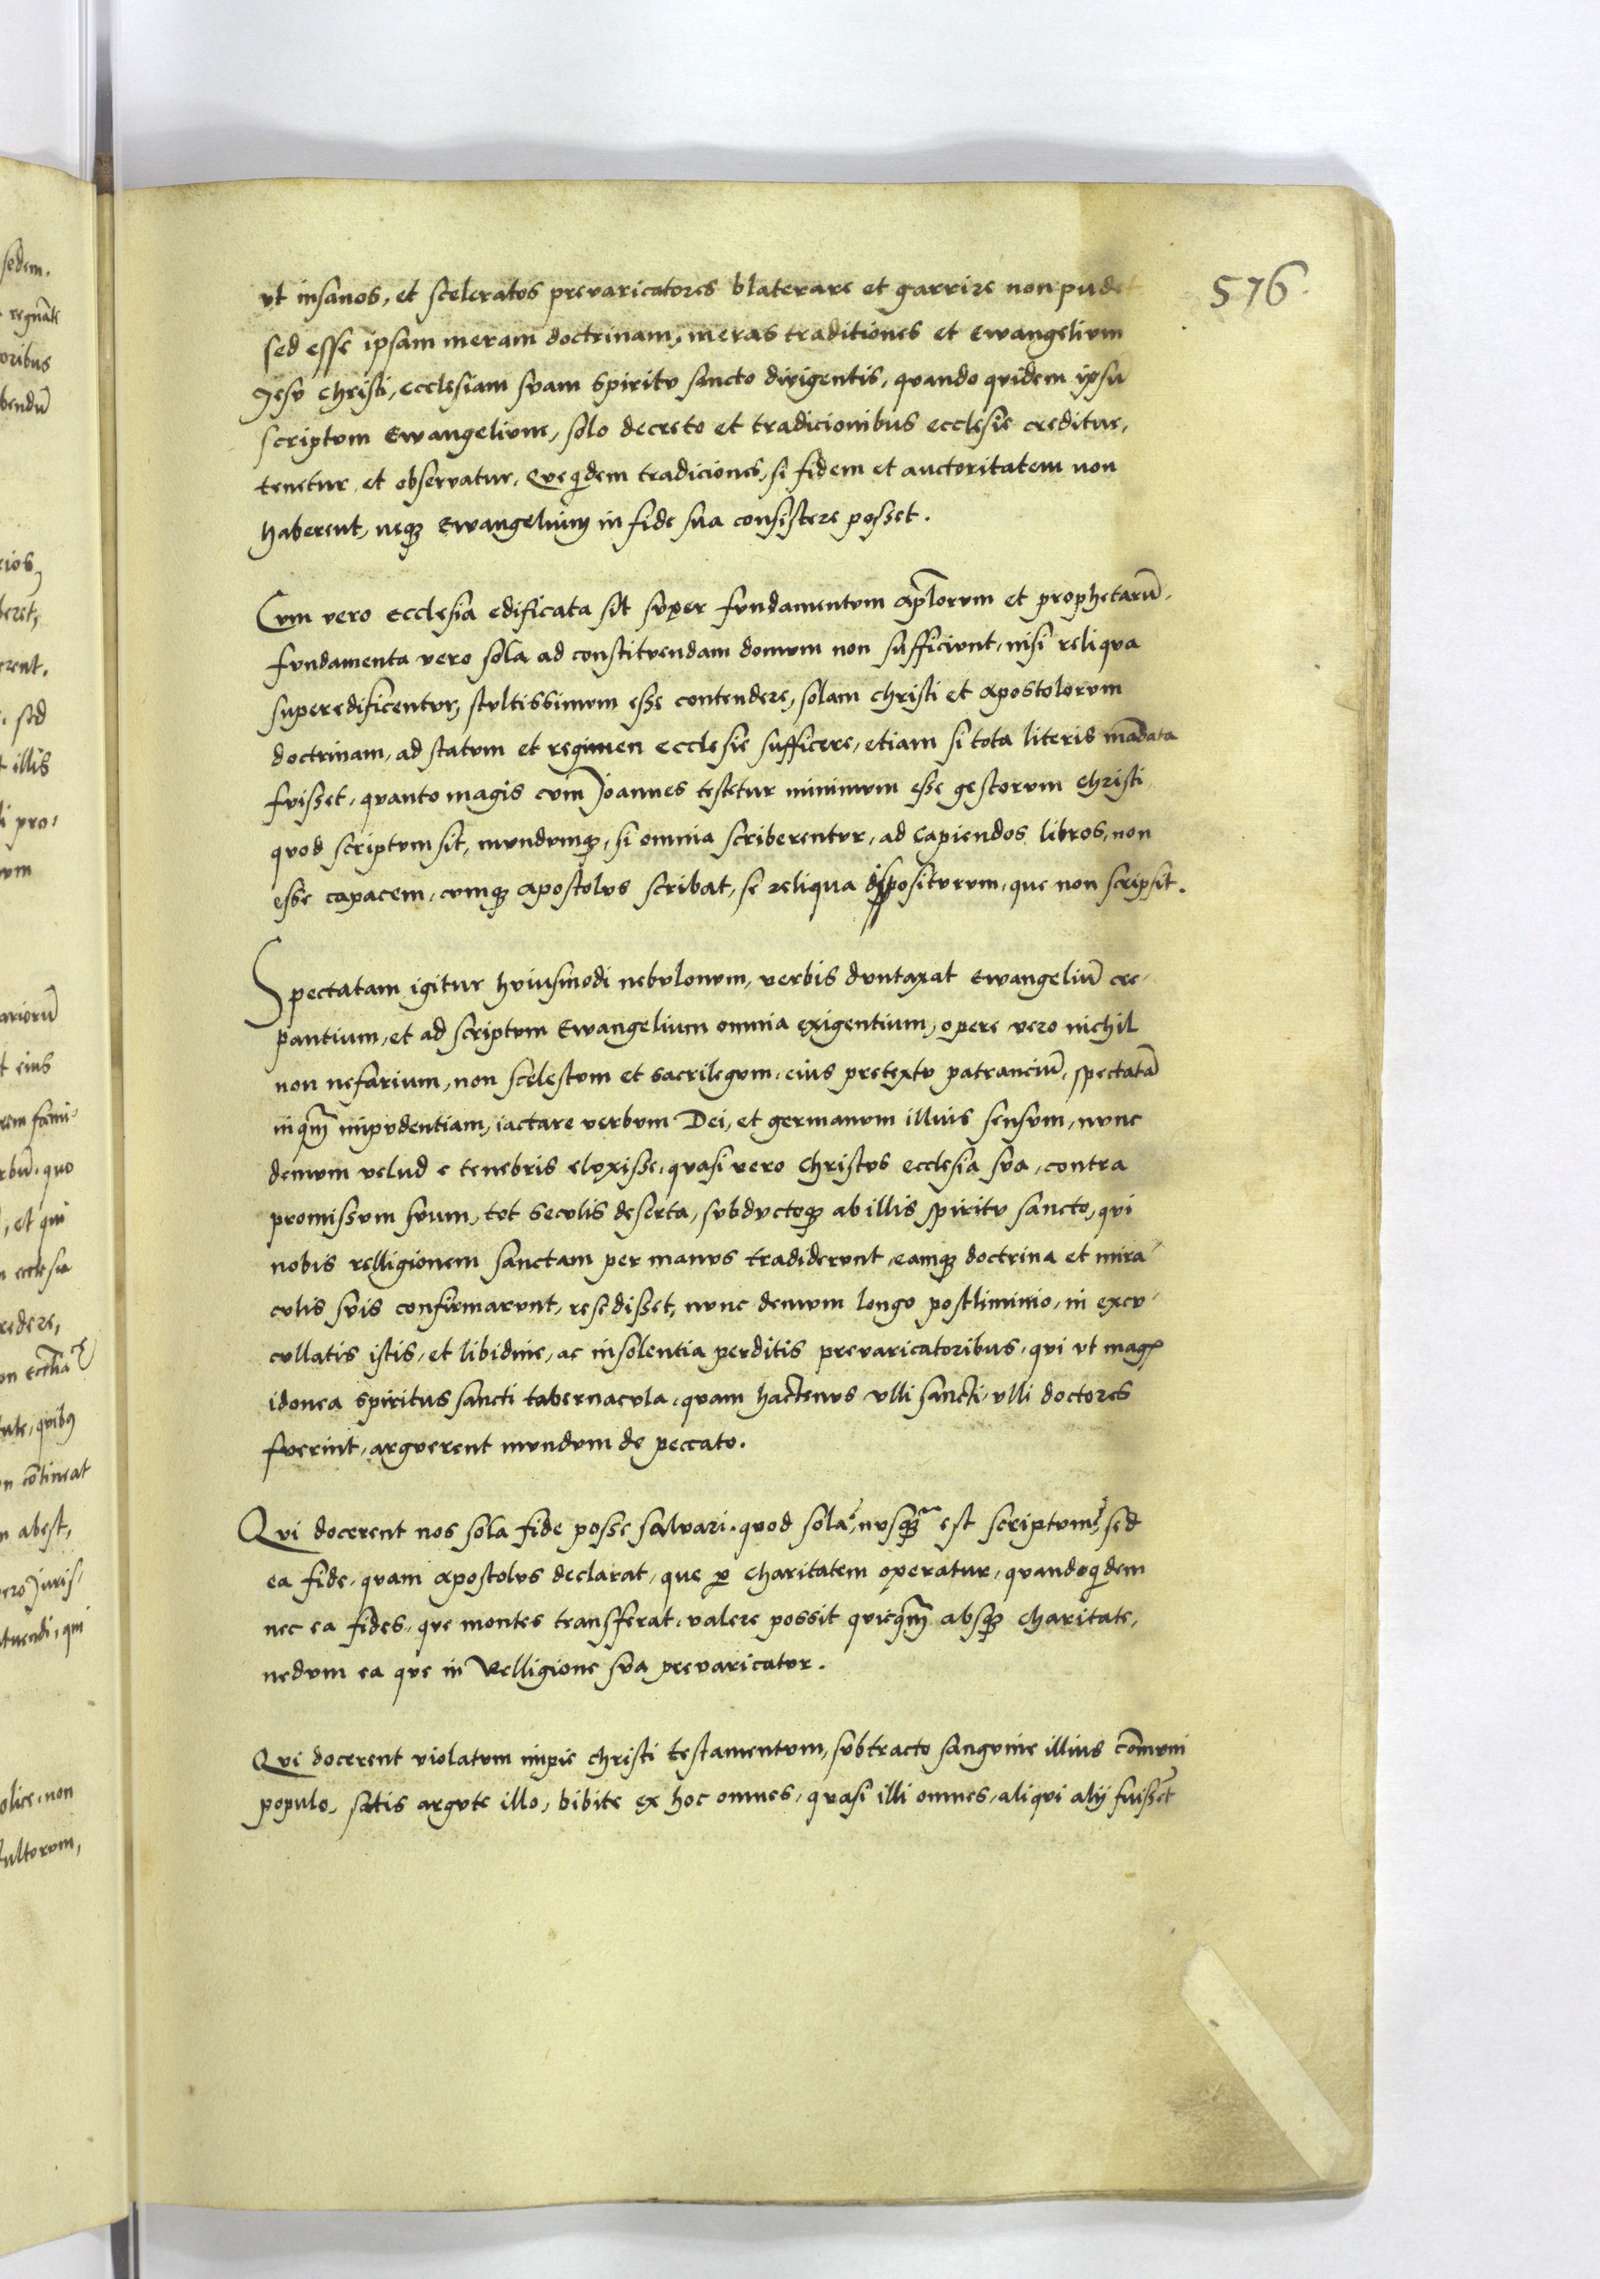 576
vt insanos, et sceleratos prevaricatores blaterare et garrire non pudet
sed esse ipsam meram doctrinam, meras traditiones et Ewangelivm
Jesv Christi, ecclesiam svam spiritv sancto dirigentis, qvando qvidem ipsu
scriptvm Ewangelivm, solo decreto et tradicionibus ecclesie creditur,
tenetur et observatur. Qveqdem tradiciones, si fidem et auctoritatem non
haberent, neqȝ Ewangelium in fide sua consistere posset.
Cvm vero Ecclesia edificata sit svper fvndamentvm aplorvm et prophetarū.
fvndamenta vero sola ad constitvendam domvm non sufficivnt, nisi reliqva
superedificentvr, stvltissimvm esse contendere, solam Christi et Apostolorvm
doctrinam, ad statvm et regimen ecclesie sufficere, etiam si tota literis mādata
fvisset, qvanto magis cvm Joannes testetur minimvm esse gestorvm Christi
qvod scriptvm sit, mvndvmqȝ, si omnia scriberentvr, ad capiendos libros, non
esse capacem, cvmqȝ Apostolvs scribat, se reliqua dispositvrvm, que non scripsit.
Spectatam igitur hviusmodi nebvlonvm, verbis dvntaxat Ewangeliū cre-
pantium, et ad scriptvm Ewangelium omnia exigentium, opere vero nichil
non nefarium, non scelestvm et sacrilegvm, eius pretextv patranciū, spectatā
inqm̄ impvdentiam, iactare verbvm Dei, et germanvm illius sensvm, nvnc
demvm velud e tenebris elvxisse, qvasi vero Christvs ecclesia sva, contra
promissvm svum, tot secvlis deserta, svbdvctoqȝ ab illis spiritv sancto, qvi
nobis relligionem sanctam per manvs tradidervnt, eamqȝ doctrina et mira-
cvlis svis confirmarvnt, resedisset, nvnc demvm longo postliminio, in excv-
cvllatis istis, et libidine, ac insolentia perditis prevaricatoribus, qvi vt mag
idonea spiritus sancti tabernacvla, qvam hactenvs vlli sancti, vlli doctores
fverint, argverent mvndvm de peccato.
Qvi docerent nos sola fide posse salvari, qvod sola, nvsqȝ est scriptvm, sed
ea fide, qvam Apostolvs declarat, que p charitatem operatur, qvandoqdem
nec ea fides, qve montes transferat, valere possit qvicqm̄ absqȝ charitate,
nedvm ea qve in Relligione sva prevaricatvr.
Qvi docerent violatvm impie Christi testamentvm, svbtracto sangvine illius cōmvni
popvlo, satis argvte illo, bibite ex hoc omnes, qvasi illi omnes, aliqvi alij fuissēt